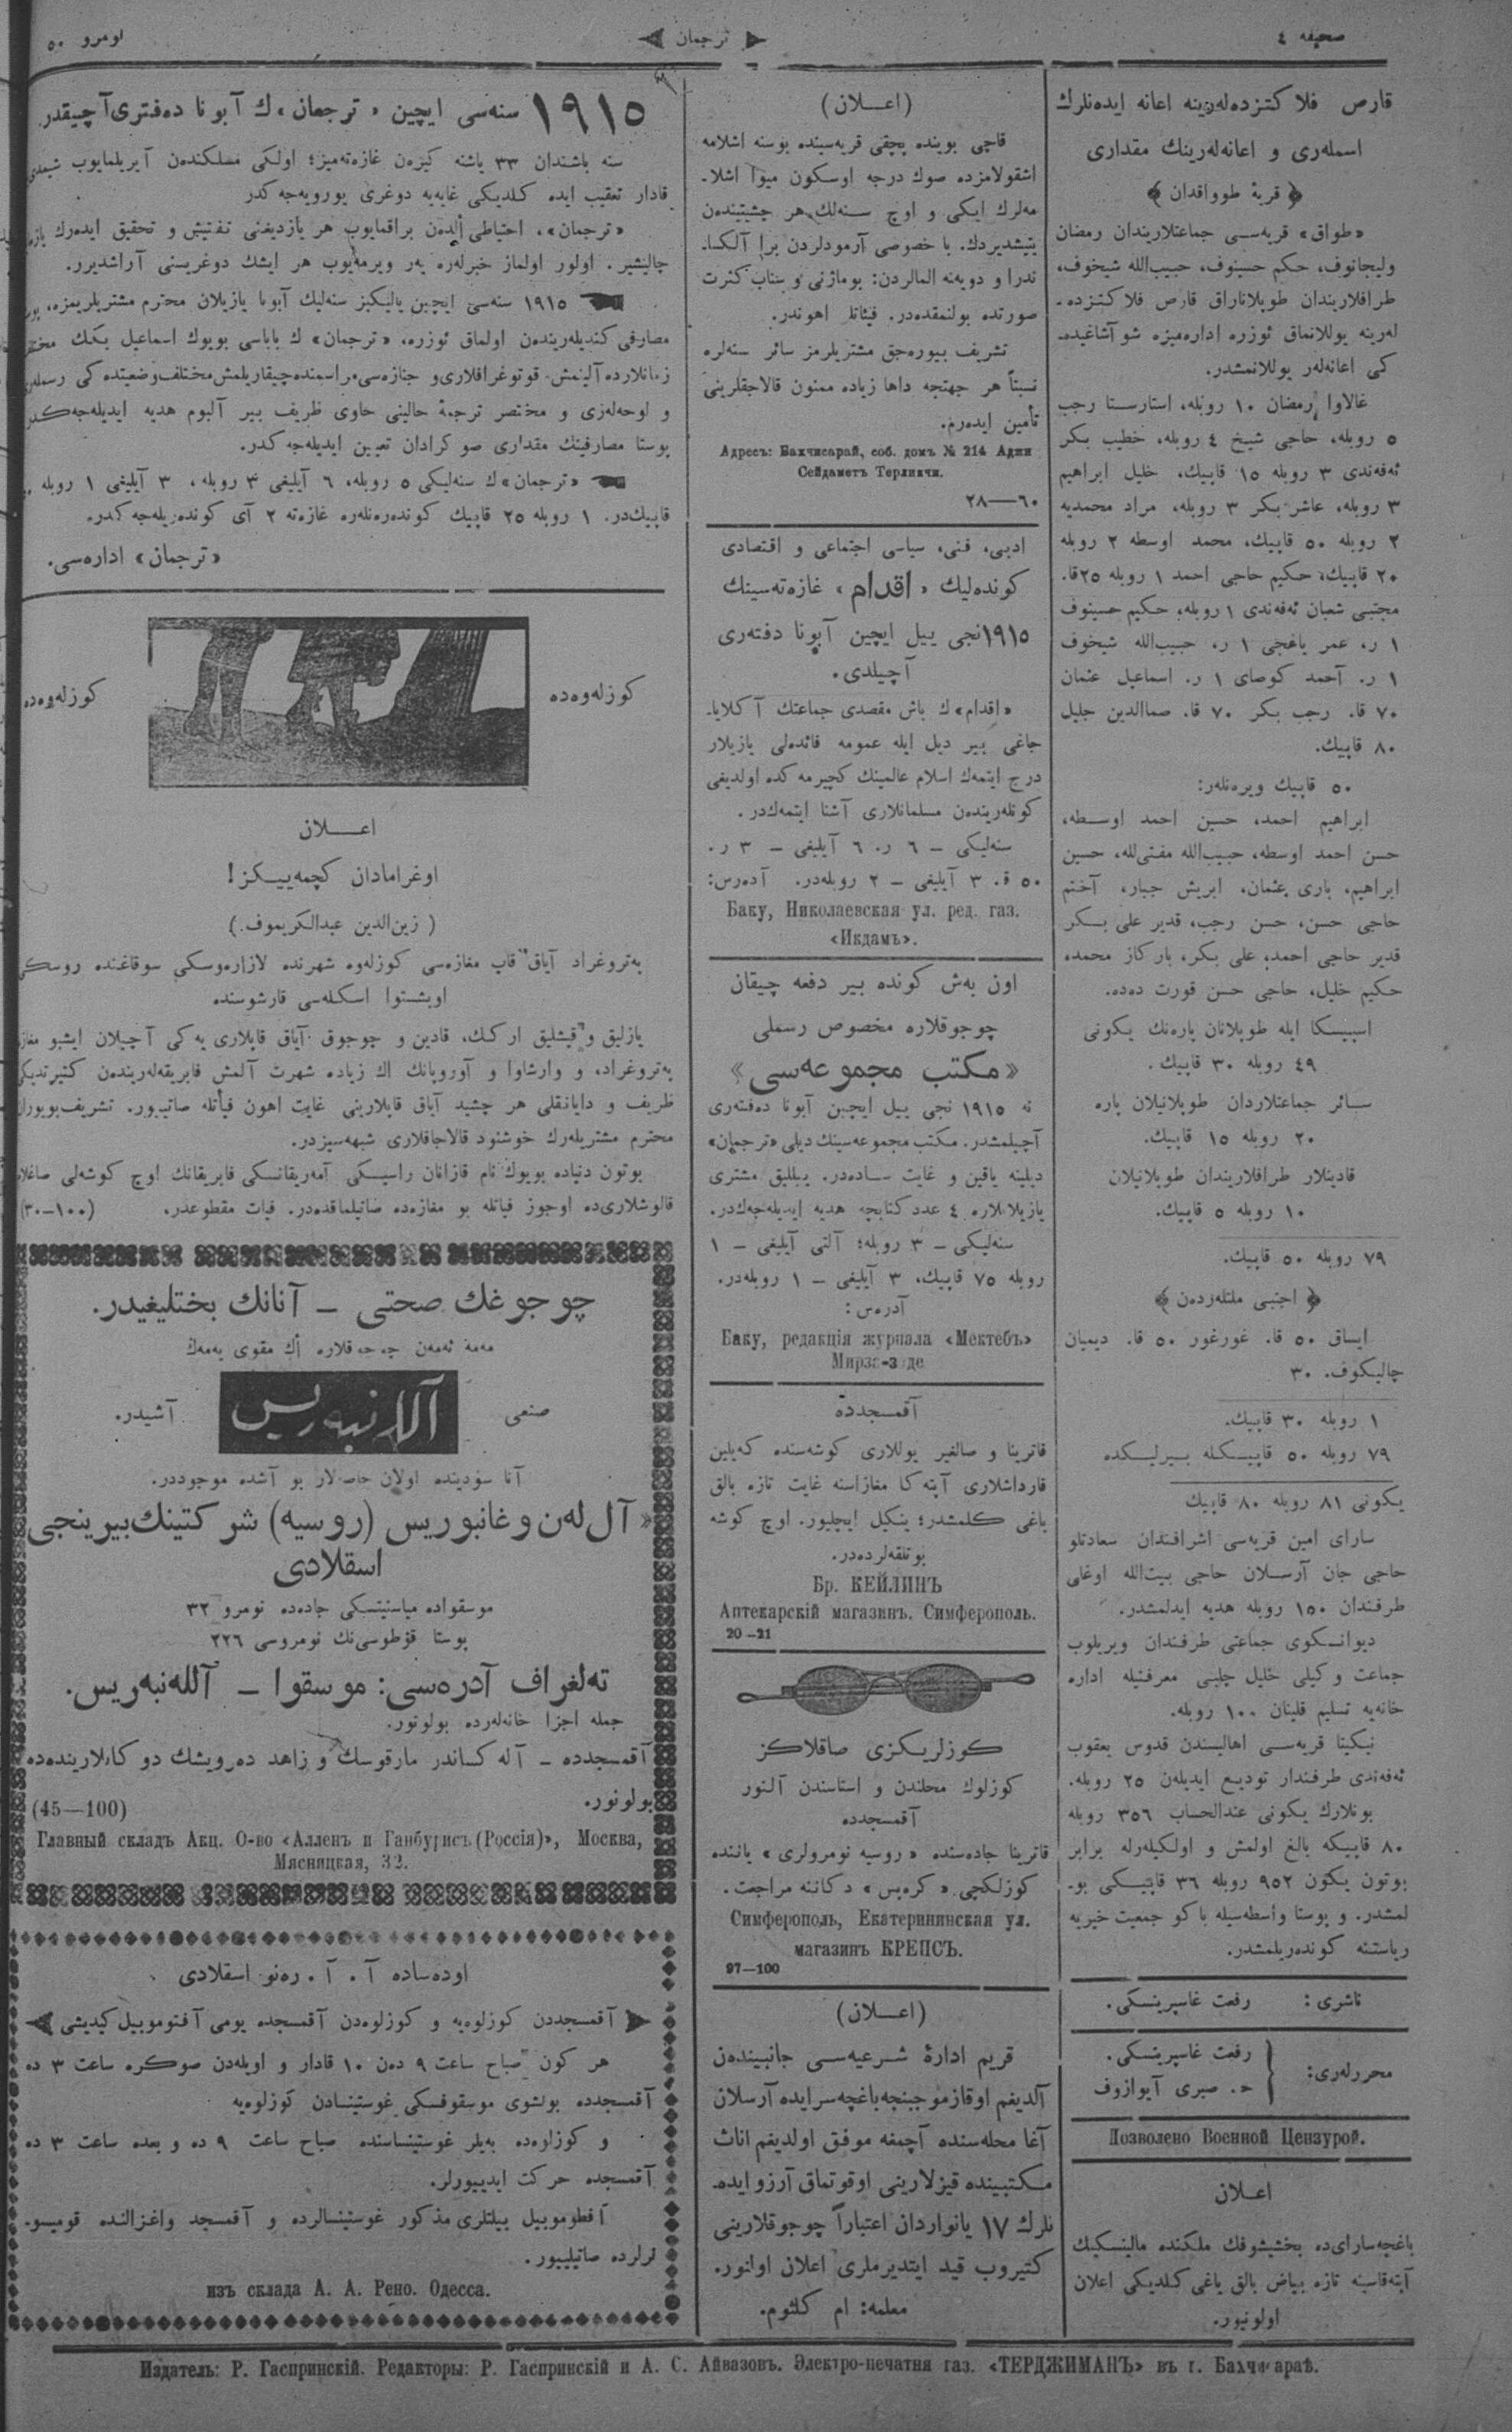 صحیفه ٤
ترجمان
نومرو ٥٠
قارص فلاكتزده‌لرینه اعانه ایده‌نلرك
اسمله‌ری و اعانه‌له‌رینك مقداری
﴿ قریهٔ طوواقدان ﴾
«طواق» قریه‌سی جماعتلاریندان رمضان
ولیجانوف، حكم حسینوف، حبیب‌الله شیخوف،
طرافلاریندان طوپلاناراق قارص فلاكتزده‌ـ
له‌رینه یوللانماق ئوزره اداره‌میزه شو آشاغیده‌ـ
كی اعانه‌له‌ر یوللانمشدر.
غالاوا رمضان ١٠ روبله، استارستا رجب
٥ روبله، حاجی شیخ ٤ روبله، خطیب بكر
ئه‌فه‌ندی ٣ روبله ١٥ قاپیك، خلیل ابراهیم
٣ روبله، عاشر بكر ٣ روبله، مراد محمدیه
٢ روبله ٥٠ قاپیك، محمد اوسطه ٢ روبله
٢٠ قاپیك، حكیم حاجی احمد ١ روبله ٢٥ قا.
مجتبی شعبان ئه‌فه‌ندی ١ روبله، حكیم حسینوف
١ ر، عمر یاغجی ١ ر، حبیب‌الله شیخوف
١ ر. آحمد كوصای ١ ر. اسماعیل عثمان
٧٠ قا. رجب بكر ٧٠ قا. صماالدین جلیل
٨٠ قاپیك.
٥٠ قاپیك ویره‌نله‌ر:
ابراهیم احمد، حسین احمد اوسطه،
حسن احمد اوسطه، حبیب‌الله مفتی‌لله، حسین
ابراهیم، باری عثمان، ابریش جبار، آختم
حاجی حسن، حسن رجب، قدیر علی بكر
قدیر حاجی احمد، علی بكر، باركاز محمده
حكیم خلیل، حاجی حسن قورت ده‌ده.
اسپیسكا ایله طوپلانان پاره‌نك یكونی
٤٩ روبله ٣٠ قاپیك.
سائر جماعتلاردان طوپلانیلان پاره
٢٠ روبله ١٥ قاپیك.
قادینلار طرافلاریندان طوپلانیلان
١٠ روبله ٥ قاپیك.
٧٩ روبله ٥٠ قاپیك.
﴿ اجنبی ملتله‌ردن ﴾
ایساق ٥٠ قا. غورغور ٥٠ قا. دیمیان
چالیكوف. ٣٠
١ روبله ٣٠ قاپیك.
٧٩ روبله ٥٠ قاپیكله بیرلیكده
یكونی ٨١ روبله ٨٠ قاپیك
سارای امین قریه‌سی اشرافندان سعادتلو
حاجی جان آرسلان حاجی بیت‌الله اوغلی
طرفندان ١٥٠ روبله هدیه ایدلمشدر.
دیوانكوی جماعتی طرفندان ویریلوب
جماعت وكیلی خلیل چلبی معرفتیله اداره
خانه‌یه تسلیم قلینان ١٠٠ روبله.
نیكیتا قریه‌سی اهالیسندن قدوس یعقوب
ئه‌فه‌ندی طرفندار تودیع ایدیله‌ن ٢٥ روبله.
بونلارك یكونی عندالحساب ٣٥٦ روبله
٨٠ قاپیكه بالغ اولمش و اولكیله‌رله برابر
بوتون یكون ٩٥٢ روبله ٣٦ قاپیكی بوـ
لمشدر. و پوستا واسطه‌سیله باكو جمعیت خیریه
ریاستنه كونده‌ریلمشدر.
ناشری: رفعت غاسپرینسكی.
محررله‌ری: رفعت غاسپرینسكی.
ح. صبری آیوازوف
Дозволено Военной Цензурой.
اعلان
باغچه‌سارای‌ده بخشیشوفك ملكنده مالینسكیك
آپته‌قاسینه تازه بیاض بالق یاغی كلدیكی اعلان
اولونیور.
(اعلان)
قاچی بوینده پچقی قریه‌سینده بوسنه اشلامه
اشقولامزده صوك درجه اوسكون میوا اشلاـ
مه‌لرك ایكی و اوچ سنه‌لك هر چشیتیندن
یتیشدیردك. با خصوصی آرمودلردن برا آلكساـ
ندرا و دویه‌نه المالردن: بوماژنی و سناب كثرت
صورتده بولنمقده‌در. فیئاتلر اهوندر.
تشریف بیوره‌جق مشتریلرمز سائر سنه‌لره
نسبتاً هر جهتجه داها زیاده ممنون قالاجقلرینی
تأمین ایده‌رم.
Адресъ: Бахчисарай, соб. домъ № 214 Аджи
Сейдаметъ Терликчи.
٦٠—٢٨
ادبی، فنی، سیاسی اجتماعی و اقتصادی
كونده‌لیك «اقدام» غازه‌ته‌سینك
١٩١٥نجی ییل ایچین آبونا دفته‌ری
آچیلدی.
«اقدام»ك باش مقصدی جماعتك آكلایاـ
جاغی بیر دیل ایله عمومه فائده‌لی یازیلار
درج ایتمه‌ك اسلام عالمینك كچیرمه‌كده اولدیغی
كونله‌ریندن مسلمانلاری آشنا ایتمه‌كدر.
سنه‌لیكی — ٦ ر. ٦ آیلیغی — ٣ ر.
٥٠ ق. ٣ آیلیغی — ٢ روبله‌در. آده‌رس:
Баку, Николаевская ул. ред. газ.
«Икдамъ».
اون به‌ش كونده بیر دفعه چیقان
چوجوقلاره مخصوص رسملی
«مكتب مجموعه‌سی»
نه ١٩١٥ نجی ییل ایچین آبونا ده‌فته‌ری
آچیلمشدر. مكتب مجموعه‌سینك دیلی «ترجمان»
دیلینه یاقین و غایت ساده‌در. ییللیق مشتری
یازیلانلاره ٤ عدد كتابچه هدیه ایدیله‌جه‌كدر.
سنه‌لیكی — ٣ روبله؛ آلتی آیلیغی — ١
روبله ٧٥ قاپیك، ٣ آیلیغی — ١ روبله‌در.
آدره‌س:
Баку, редакція журнала «Мектебъ»
Мирза-заде
آقمسجدده
قاترینا و صالغیر یوللاری كوشه‌سنده كه‌یلین
قارداشلاری آپته‌كا مغازاسنه غایت تازه بالق
یاغی كلمشدر؛ ینكیل ایچلیور. اوچ كوشه
بوتلقه‌لرده‌در.
Бр. КЕЙЛИНЪ
Аптекарскій магазинъ. Симферополь.
20—21
كوزلریكزی صاقلاكز
كوزلوك محلندن و استاسندن آلنور
آقمسجدده
قاترینا جاده‌سنده «روسیه نومرولری» یاننده
كوزلكچی «كره‌پس» دكاننه مراجعت.
Симферополь, Екатерининская ул.
магазинъ КРЕПСЪ.
97—100
(اعلان)
قریم ادارهٔ شرعیه‌سی جانبیندن
آلدیغم اوقازموجبنجه باغچه‌سرایده آرسلان
آغا محله‌سنده آچمغه موفق اولدیغم اناث
مكتبینده قیزلارینی اوقوتماق آرزو ایده‌ـ
نلرك ١٧ یانواردان اعتباراً چوجوقلارینی
كتیروب قید ایتدیرملری اعلان اولنور.
معلمه: ام كلثوم.
١٩١٥ سنه‌سی ایچین «ترجمان»ك آبونا ده‌فتری آچیقدر
سنه باشندان ٣٣ یاشنه كیره‌ن غازه‌ته‌میز؛ اولكی مسلكندن آیریلمایوب شیمدی
قادار تعقیب ایده كلدیكی غایه‌یه دوغری یورویه‌جه‌كدر
«ترجمان»، احتیاطی ألدن براقمایوب هر یازدیغنی تفتیش و تحقیق ایده‌رك
چالیشیر. اولور اولماز خبرله‌ره یه‌ر ویرمه‌یوب هر ایشك دوغریسنی آراشدیرر.
١٩١٥ سنه‌سی ایچین یالیكیز سنه‌لیك آبونا یازیلان محترم مشتریلریمزه،
مصارفی كندیله‌ریندن اولماق ئوزره، «ترجمان»ك باباسی بویوك اسماعیل بكك
زمانلارده آلینمش فوتوغرافلاری و جنازه‌سی مراسمنده چیقاریلمش مختلف وضعیتده كی
و لوحه‌له‌ری و مختصر ترجمهٔ حالینی حاوی ظریف بیر آلبوم هدیه ایدیله‌جه‌كدر
پوستا مصارفینك مقداری صوكرادان تعیین ایدیله‌جه‌كدر.
«ترجمان»ك سنه‌لیكی ٥ روبله، ٦ آیلیغی ٣ روبله، ٣ آیلیغی ١ روبله
قاپیك‌در. ١ روبله ٢٥ قاپیك كونده‌ره‌نله‌ره غازه‌ته ٢ آی كونده‌ریله‌جه‌كدر.
«ترجمان» اداره‌سی.
كوزله‌وه‌ده
كوزله‌وه‌ده
اعلان
اوغرامادان كچمه‌ییكز!
(زین‌الدین عبدالكریموف.)
په‌تروغراد آیاق قاپ مغازه‌سی كوزله‌وه شهرنده لازاره‌وسكی سوقاغنده روسكی
اوبشتوا اسكله‌سی قارشوسنده
یازلیق و قیشلیق ارك، قادین و چوجوق آیاق قاپلاری یه‌كی آچیلان ایشبو
په‌تروغراد، و وارشاوا و آوروپانك اك زیاده شهرت آلمش فابریقه‌له‌ریندن
ظریف و دایانقلی هر چشید آیاق قاپلارینی غایت اهون فیأتله صاتیور. تشریف
محترم مشتریله‌رك خوشنود قالاجاقلاری شبهه‌سیزدر.
بوتون دنیاده بویوك نام قازانان راسیسكی آمه‌ریقانسكی فابریقانك اوچ كوشه‌لی
قالوشلاری‌ده اوجوز فیاتله بو مغازه‌ده صاتیلماقده‌در. فیات مقطوعدر. (٣٠—١٠٠)
چوجوغك صحتی — آنانك بختلیغیدر.
مه‌مه ئه‌مه‌ن چوجوقلاره أك مقوی یه‌مه‌ك
صنعی
آللانبه‌ریس
آشیدر.
آنا سودینده اولان خاصه‌لار بو آشده موجوددر.
«آل له‌ن و غانبوریس (روسیه) شركتینك بیرینجی
اسقلادی
موسقواده میاسنیتسكی جاده‌ده نومرو ٣٢
پوستا قوطوسی‌نك نومروسی ٢٢٦
ته‌لغراف آدره‌سی: موسقوا — آلله‌نبه‌ریس.
جمله اجزا خانه‌له‌رده بولونور.
آقمسجدده — آله‌كساندر مارقوسك و زاهد ده‌رویشك دوكانلارینده‌ده
بولونور.
(45—100)
Главный складъ Акц. О-во «Алленъ и Ганбурисъ (Россія)», Москва,
Мясницкая, 32.
اوده‌ساده آ. آ. ره‌نو اسقلادی
آقمسجددن كوزلوه‌یه و كوزلوه‌دن آقمسجده یومی آفتوموبیل كیدیشی
هر كون صباح ساعت ٩ ده‌ن ١٠ قادار و اویله‌دن صوكره ساعت ٣ ده
آقمسجدده بولشوی موسقوفسكی غوستینسادن كوزلوه‌یه
و كوزلوه‌ده به‌یلر غوستینساسنده صباح ساعت ٩ ده و بعده ساعت ٣ ده
آقمسجده حركت ایدییورلر.
آفطوموبیل بیلتلری مذكور غوستینسالرده و آقمسجد واغزالنده قومیسوـ
نرلرده صاتیلییور.
изъ склада А. А. Рено. Одесса.
Издатель: Р. Гаспринскій. Редакторы: Р. Гаспринскій и А. С. Айвазовъ. Электро-печатня газ. «ТЕРДЖИМАНЪ» въ г. Бахчисараѣ.